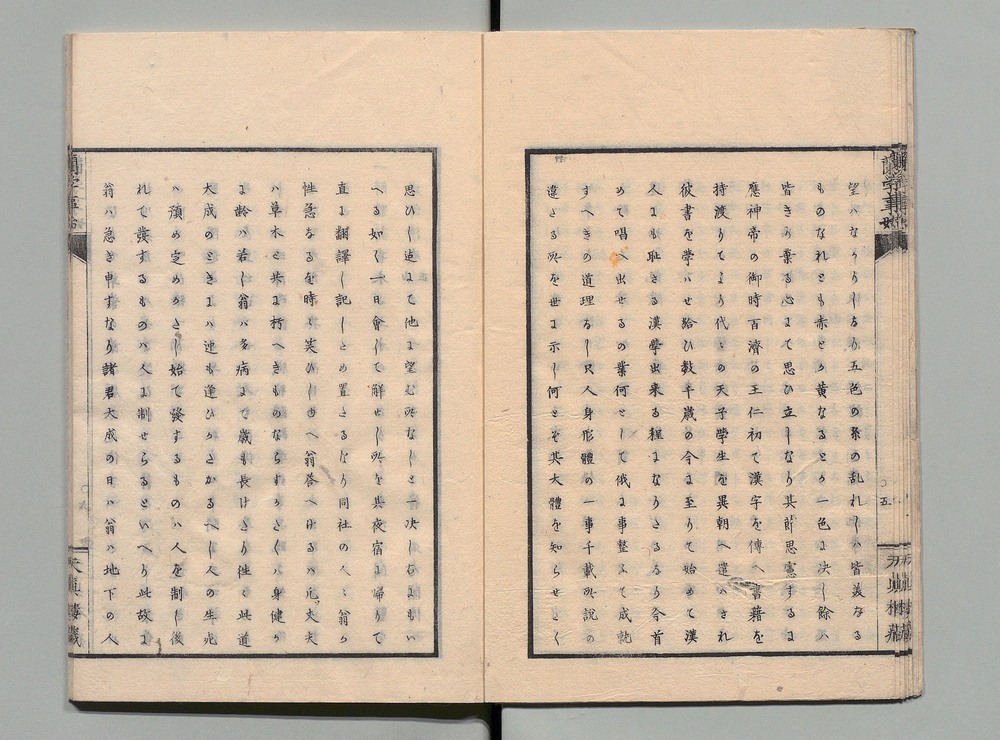 望ハなかりしなり五色の糸の乱れしハ皆美なる
ものなれとも赤とか黄なるとか一色に决し餘ハ
皆きり棄る心にて思ひ立しなり其節思慮するに
應神帝の御時百濟の王仁初て漢字を傳へ書藉を
持渡りてより代々の天子學生を異朝へ遣ハされ
彼書を学ハせ給ひ数千歳の今に至りて始めて漢
人にも耻さる漢學出来る程になりたるなり今首
めて唱へ出せるの業何として俄に事整ふて成就
すへきの道理なし只人身形體の一事千載所説の
違さる所を世に示し何とそ其大體を知らせたく
思ひし迠にて他に望む所なしと一决しおよもい
へる如く一日會して解せし所を其夜宿に帰りて
直に翻譯し記したゝめ置たるなり同社の人々翁か
性急なるを時々笑ひしゆへ翁答へけるハ凡丈夫
ハ草木と共に朽へきものならすかたくハ身健か
に齢ハ若し翁ハ多病にて歳も長けたり徃々此道
大成のときにハ迚も逢ひかたかるへし人の生死
ハ預め定めかたし始て發するものハ人を制し後
れて發するものハ人に制せらるといへり此故に
翁ハ急き申すなり諸君大成の日ハ翁ハ地下の人
蘭学事始
五
天真樓藏